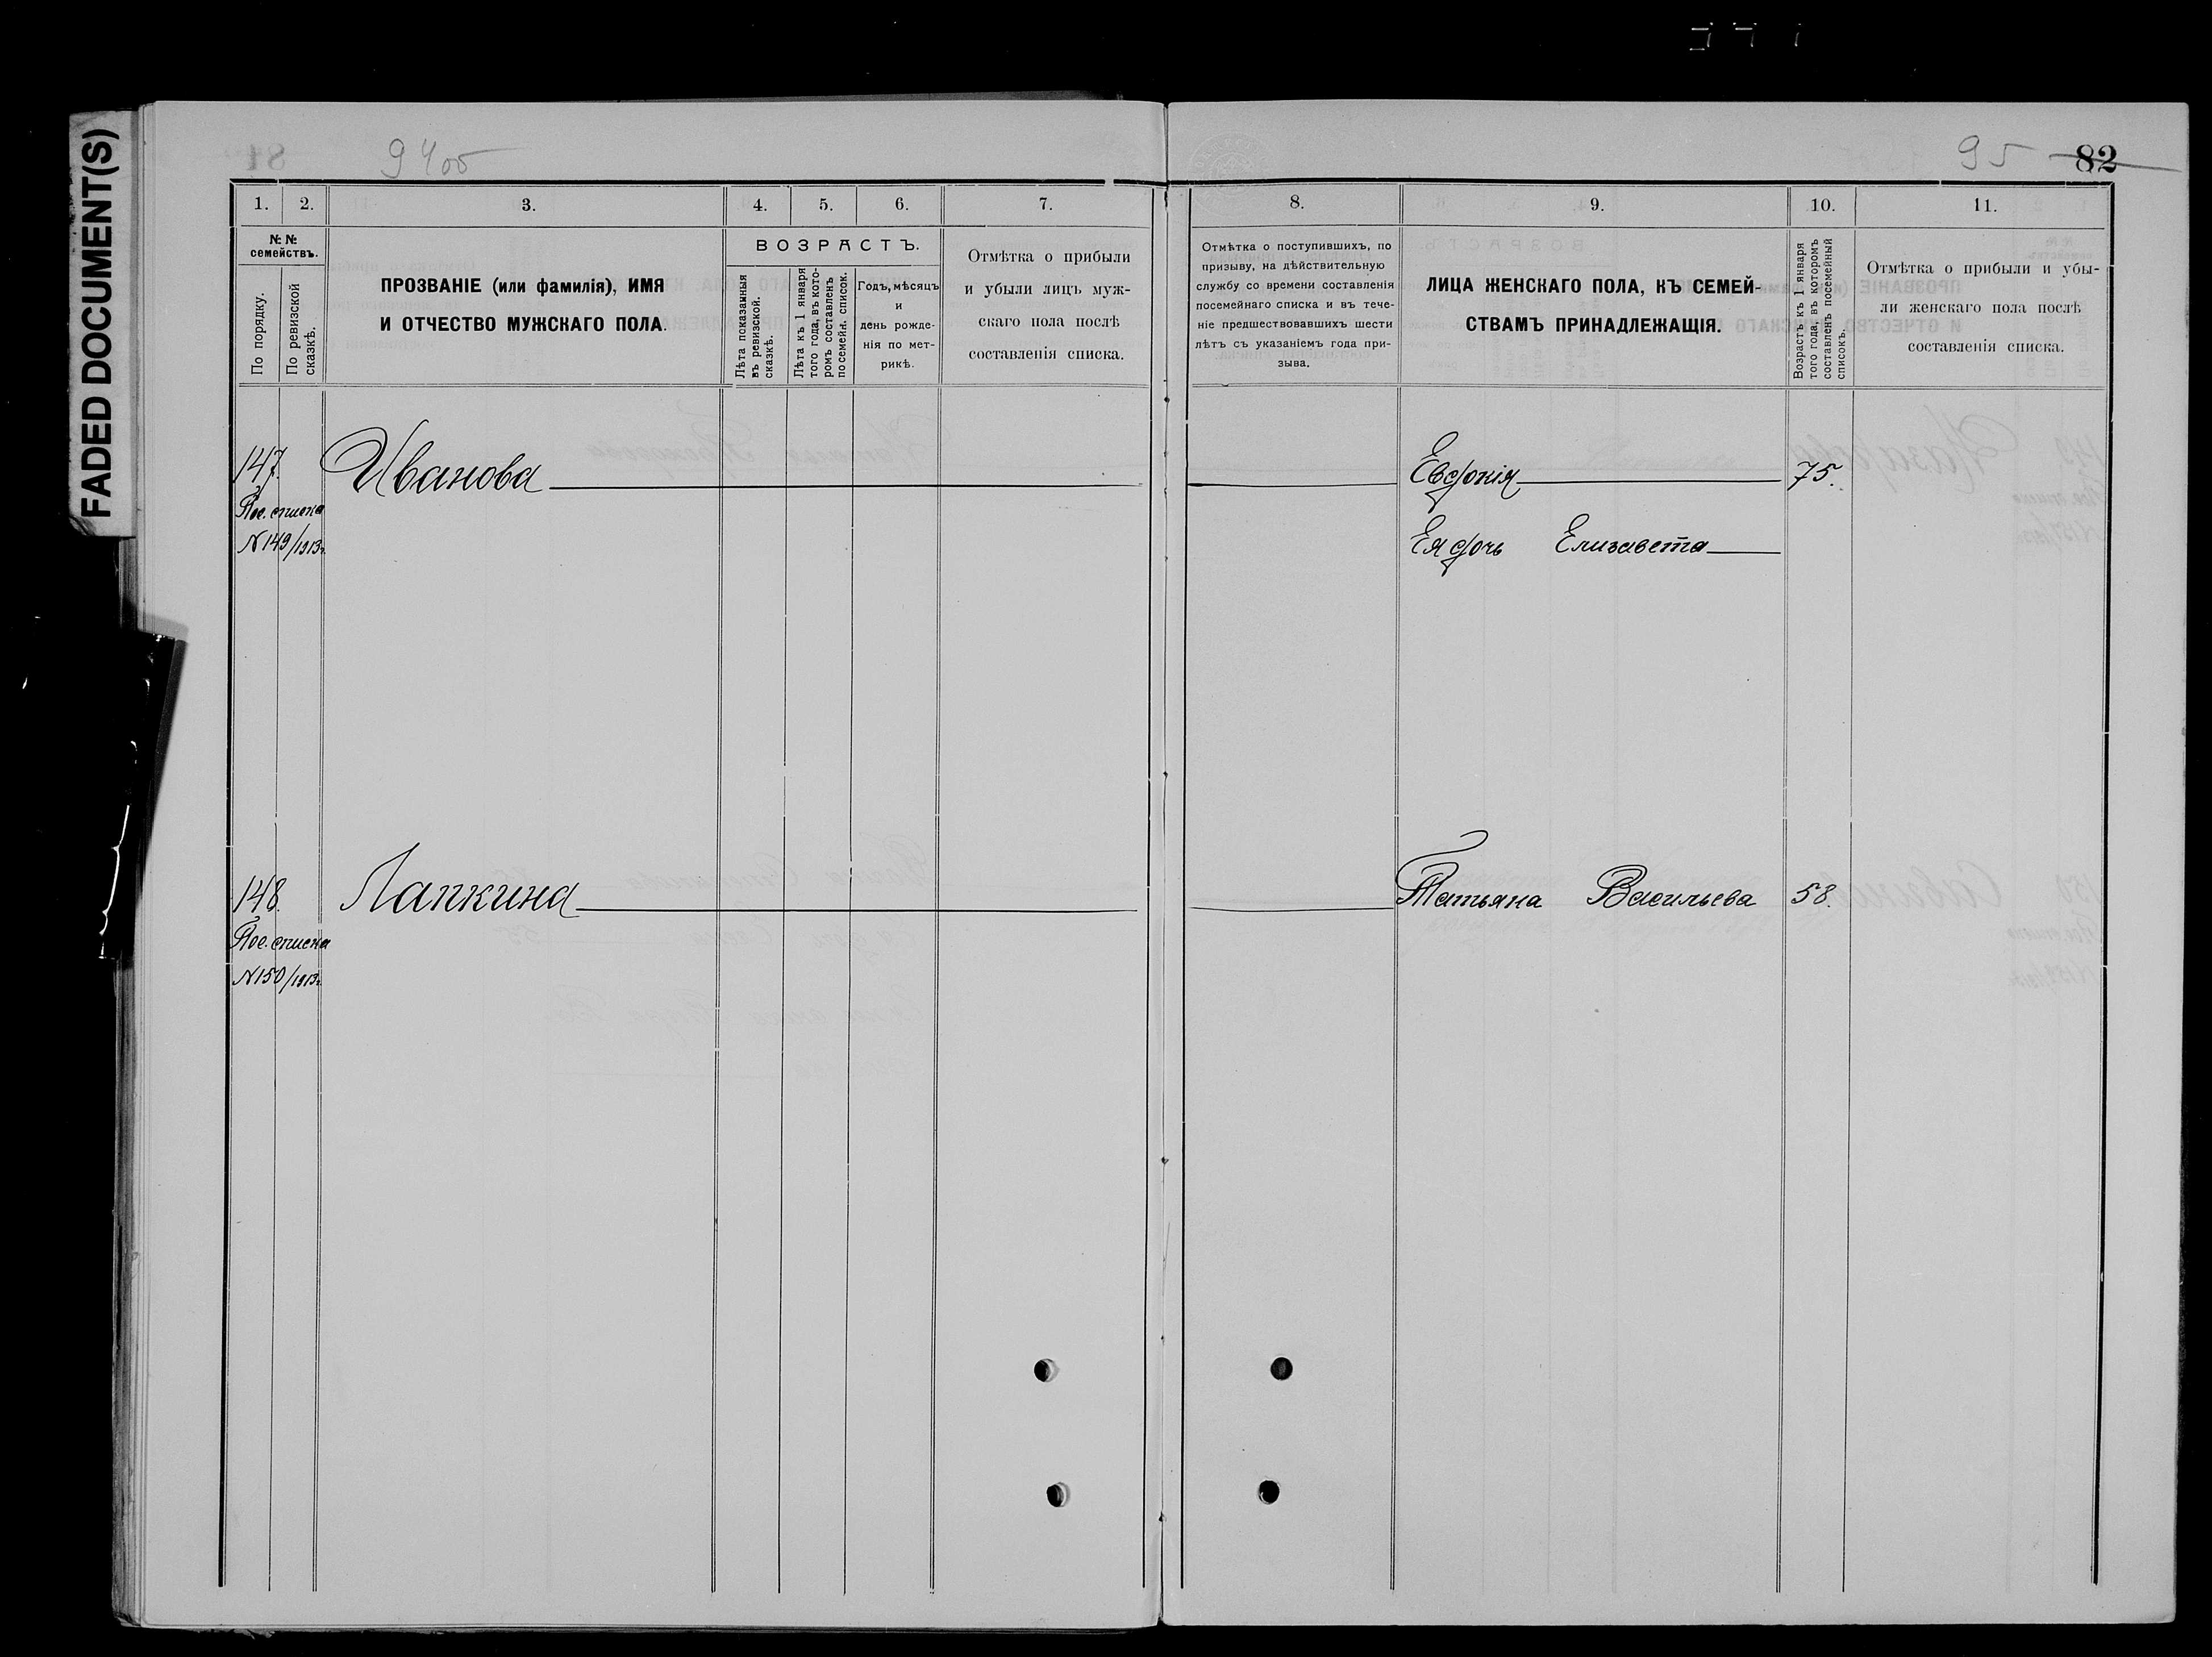 FADED DOCUMENT(S)
94об
95 82
1. 2. 3. 4. 5. 6. 7.
№ №
семействъ.
По порядку.
По ревизской
сказкѣ.
ПРОЗВАНІЕ (или фамилія), ИМЯ
И ОТЧЕСТВО МУЖСКАГО ПОЛА.
ВОЗРАСТЪ.
Лѣта показанныя
въ ревизской.
сказкѣ.
Лѣта къ 1 января
того года, въ кото-
ромъ составленъ
посемейн. список.
Годъ, мѣсяцъ
и
день рожде-
нія по мет-
рикѣ.
Отмѣтка о прибыли
и убыли лицъ муж-
скаго пола послѣ
составленія списка.
8. 9. 10. 11.
Отмѣтка о поступившихъ, по
призыву, на дѣйствительную
службу со времени составленія
посемейнаго списка и въ тече-
ніе предшествовавшихъ шести
лѣтъ съ указаніемъ года при-
зыва.
ЛИЦА ЖЕНСКАГО ПОЛА, КЪ СЕМЕЙ-
СТВАМЪ ПРИНАДЛЕЖАЩІЯ.
Возрастъ къ 1 января
того года, въ которомъ
составленъ посемейный
списокъ.
Отмѣтка о прибыли и убы-
ли женскаго пола послѣ
составленія списка.
147. Иванова Евдокія 75.
Пос. списка
N149/1913г. Ея дочь Елизавета
148. Лапкина Татьяна Васильева 58.
Пос. списка
N150/1913г.